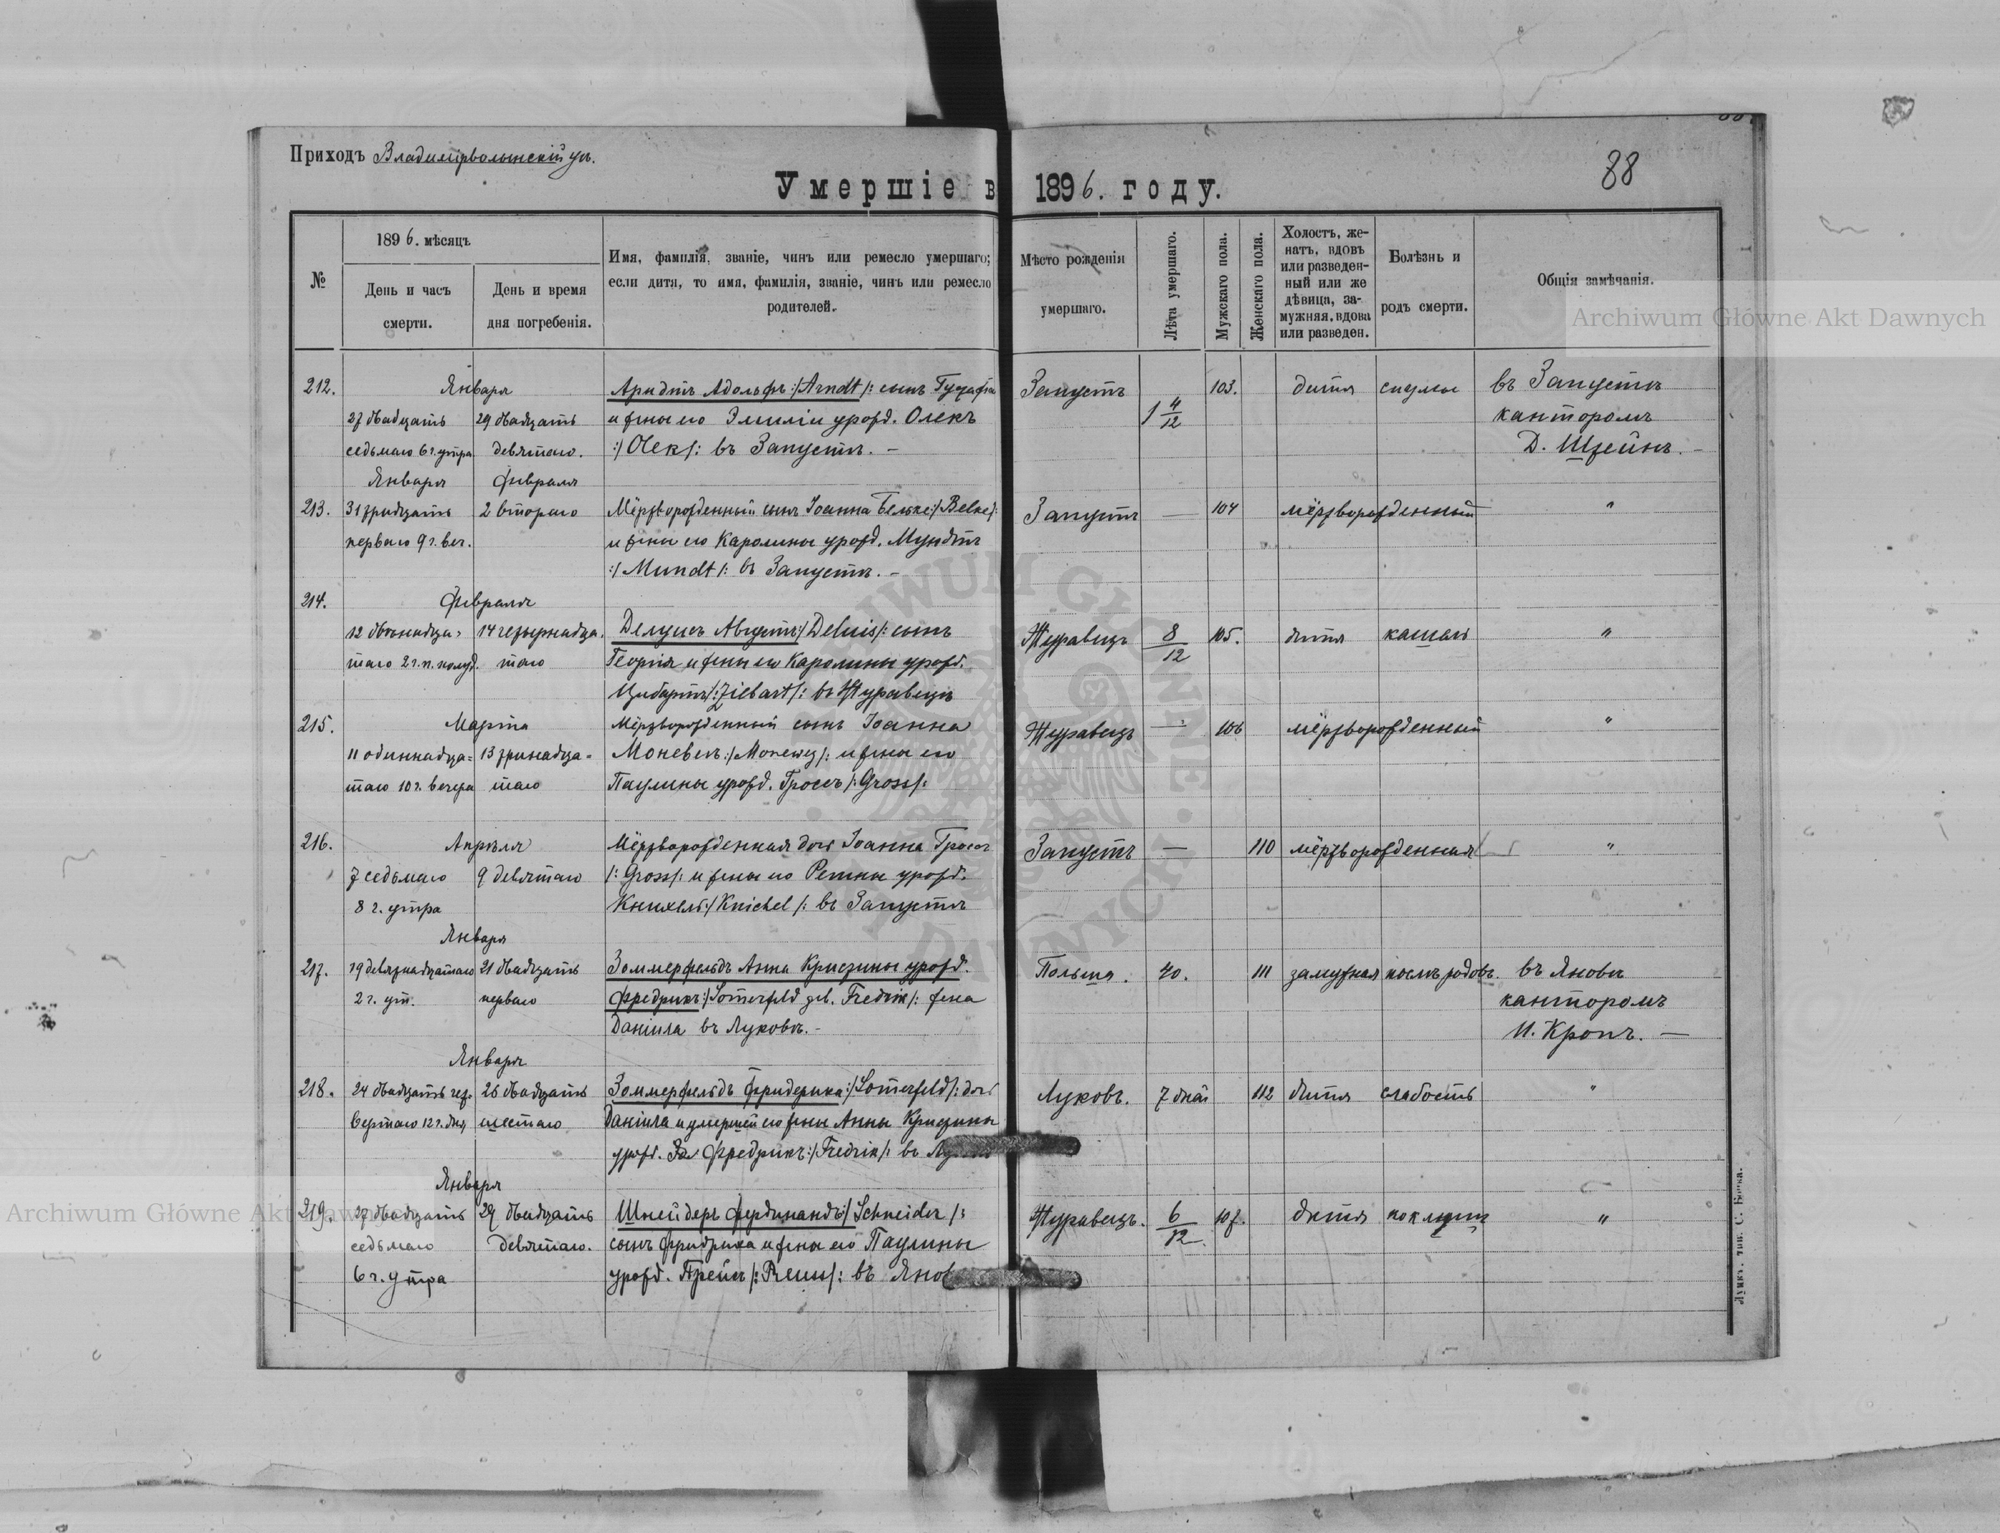 Приходъ Владимірволынскій уѣ.
Умершіе въ 1896. году.
88
№
1896. мѣсяцъ
День и часъ смерти.
День и время дня погребенія.
Имя, фамилія, званіе, чинъ или ремесло умершаго;
если дитя, то имя, фамилія, званіе, чинъ или ремесло
родителей.
Мѣсто рожденія
умершаго.
Лѣта умершаго.
Мужскаго пола.
Женскаго пола.
Холостъ, же-
натъ, вдовъ
или разведен-
ный или же
дѣвица, за-
мужняя, вдова
или разведен.
Болѣзнь и
родъ смерти.
Общія замѣчанія.
Archiwum Główne Akt Dawnych
212. Января Арндтъ Адольфъ :/Arndt/: сынъ Густафа Запустъ 103. дитя въ Запустъ
27 двадцать 29 двадцать и жены его Эмиліи урожд. Олекъ 1 4/12 канторомъ
седьмаго 6 ч. утра девятаго. :/Olek/: въ Запустъ. – Д. Штейнъ. –
Января Февраля
213. 31 тридцать 2 втораго Мёртворожденный сынъ Іоанна Бельке :/Belke/: Запустъ — 104 мёртворожденный "
перваго 9 ч. веч. и жены его Каролины урожд. Мундтъ
:/Mundt/: въ Запустъ. –
214. Февраля
12 двѣнадца- 14 четырнадца. Делуисъ Августъ :/Deluis/: сынъ Журавецъ 8/12 105. дитя кашель "
таго 2 ч. п. полуд. таго Георгія и жены его Каролины урожд.
Цибартъ /:Ziebart/: въ Журавецъ
215. Марта Мёртворожденный сынъ Іоанна Журавецъ — 106 мёртворожденный "
11 одиннадца= 13 тринадца= :/Monewez/: и жены его
таго 10 ч. вечера таго Паулины урожд. Гроссъ /:Gross/:
216. Апрѣля Мёртворожденная дочь Іоанна Гроссъ Запустъ — 110 мёртворожденная "
7 седьмаго 9 девятаго /:Gross/: и жены его урожд.
8 ч. утра Книхель :/Knichel/: въ Запустъ
Января
217. 19 девятнадцатаго 21 двадцать Зоммерфельдъ Анна Кристины урожд. Польша. 40. 111 замужная послѣ родовъ. въ Яновѣ
2 ч. ут. перваго Фредрикъ :/Somerfeld geb. Fredrik/: жена канторомъ
Даніила въ Луковъ. – И. Кропъ. —
Января
218. 24 двадцать чет. 26 двадцать Зоммерфельдъ Фридерика :/Somerfeld/: дочь Луковъ. 7 дней 112 дитя слабость "
вертаго 12 ч. дня шестаго Даніила и умершей его жены Анны Кристины
урожд. Фредрикъ :/Fredrik/: въ
Января
219. 27 двадцать 29 двадцать Шнейдеръ Фердинандъ :/Schneider/: Журавецъ. 6/12 107. дитя коклюшъ "
седьмаго девятаго. сынъ Фридриха и жены его Паулины
6 ч. утра урожд. /: въ
Archiwum Główne Akt Dawnych
Луцкъ, тип. С. Бѣрка.
ARCHIWUM GŁÓWNE AKT DAWNYCH